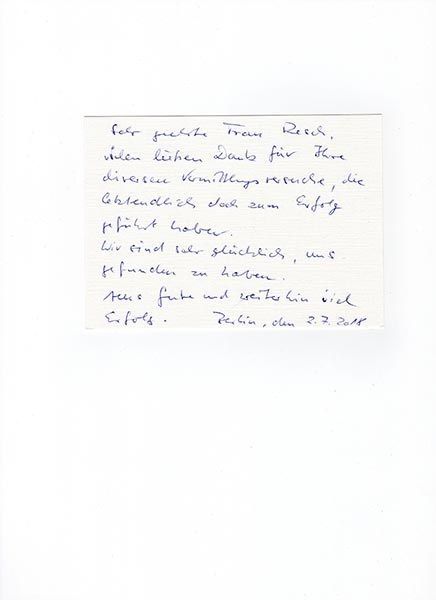 Sehr geehrte Frau Resch,
vielen lieben Dank für Ihre
diversen Vermittlungsversuche, die
letztendlich doch zum Erfolg
geführt haben.
Wir sind sehr glücklich, uns
gefunden zu haben.
Alles Gute und weiterhin viel
Erfolg. Berlin, den 2.7.2018